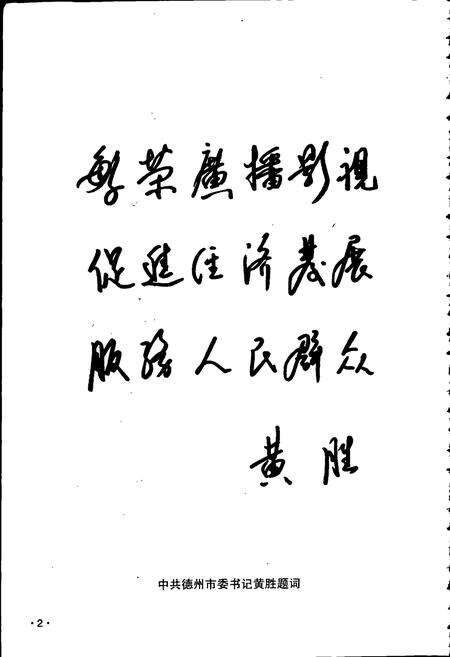 繁荣廣播影視
促進经济发展
服务人民群众
黄胜
中共德州市委书记黄胜题词
·2·